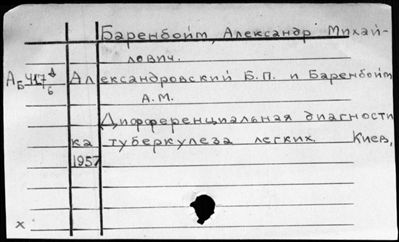 Баренбойм, Александр Михай-
лович.
Александровский Б.П. и Баренбойм
А.М.
Дифференциальная диагности
ка туберкулеза легких. Киев,
1957
x